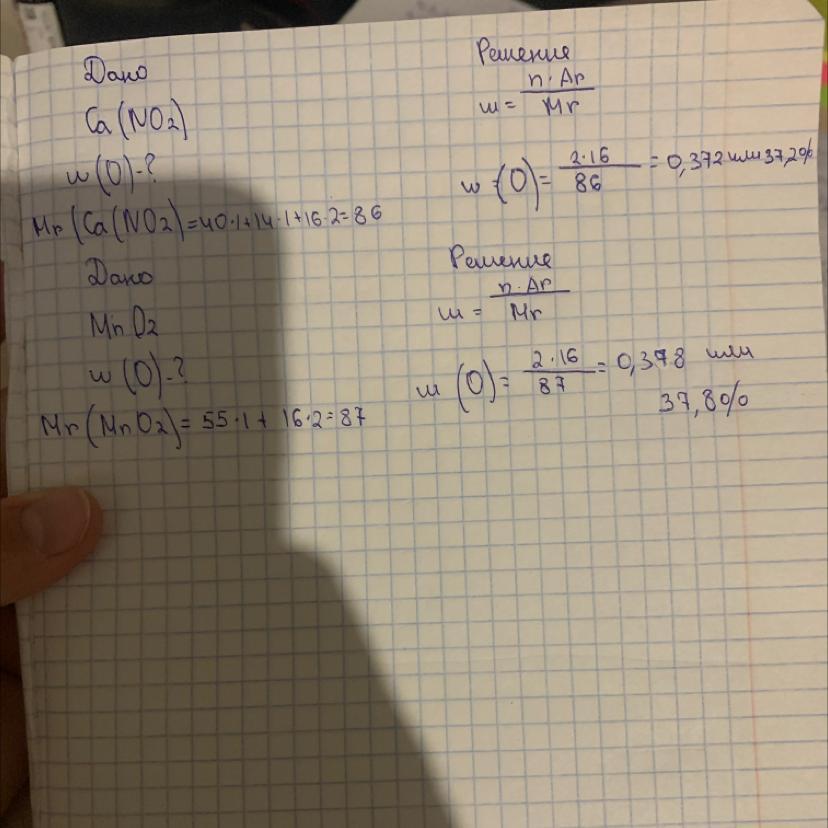 Дано
Ca(NO2)
w(O)-?
Mr(Ca(NO2)=40·1+14·1+16·2=86
Решение
w= n·Ar / Mr
w(O)= 2·16 / 86 =0,372 или 37,2%
Дано
MnO2
w(O)-?
Mr(MnO2)=55·1+16·2=87
Решение
w= n·Ar / Mr
w(O)= 2·16 / 87 =0,378 или
37,8%